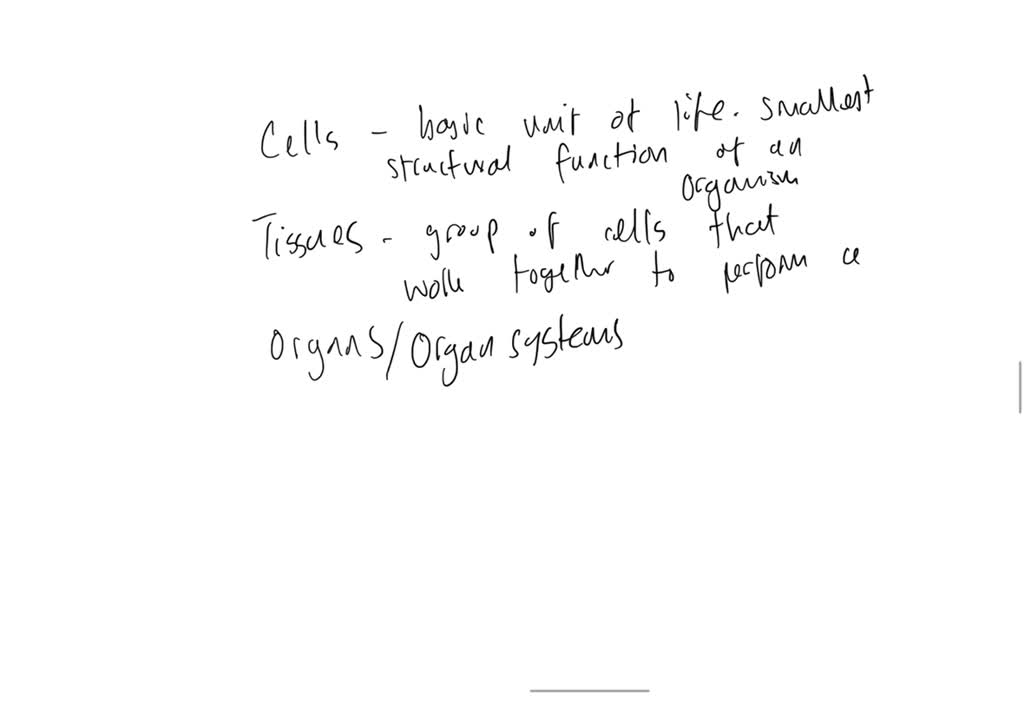 Cells - basic unit of life. smallest
structural function of an
organism
Tissues - group of cells that
work together to perform a
Organs/Organ systems